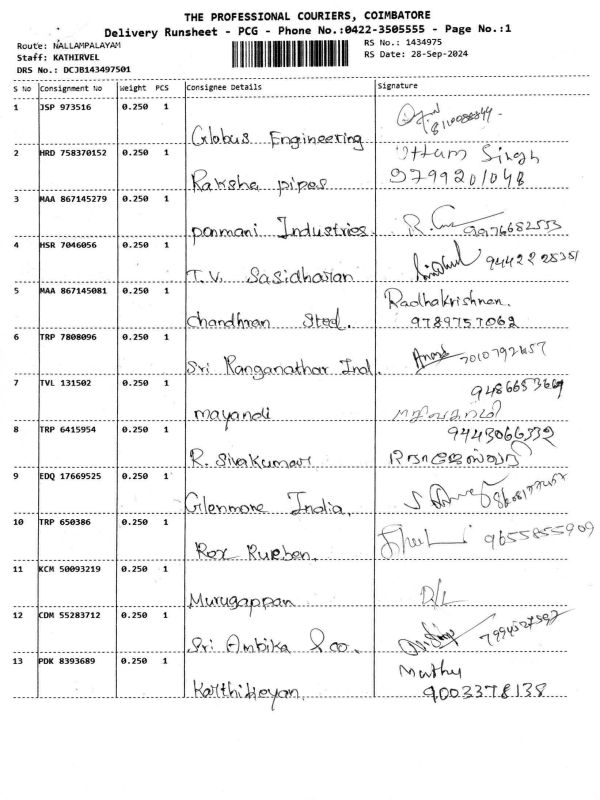 THE PROFESSIONAL COURIERS, COIMBATORE
Delivery Runsheet - PCG - Phone No.:0422-3505555 - Page No.:1
Route: NALLAMPALAYAM
RS No.: 1434975
Staff: KATHIRVEL
RS Date: 28-Sep-2024
DRS No.: DCJB143497501
S No Consignment No Weight PCS Consignee Details Signature
1 JSP 973516 0.250 1
Globus Engineering
2 HRD 758370152 0.250 1 Uttam Singh
Raksha pipes 9799201048
3 MAA 867145279 0.250 1
ponmani Industries. 9976682553
4 HSR 7046056 0.250 1
T.V. Sasidharan
5 MAA 867145081 0.250 1 Radhakrishnan.
Chandhran Steel. 9789757062
6 TRP 7808096 0.250 1
Sri Ranganathar Ind. Anand 7010792657
7 TVL 131502 0.250 1 9486653669
mayandi
8 TRP 6415954 0.250 1 9443066332
R. Sivakumar ராஜேஸ்வரி
9 EDQ 17669525 0.250 1
Glenmore India.
10 TRP 650386 0.250 1
Rox Rueben. 9655855909
11 KCM 50093219 0.250 1
Murugappan D/L
12 CDM 55283712 0.250 1
Sri Ambika & co. 7994527597
13 PDK 8393689 0.250 1 Muthu
Karthikeyan. 9003378138